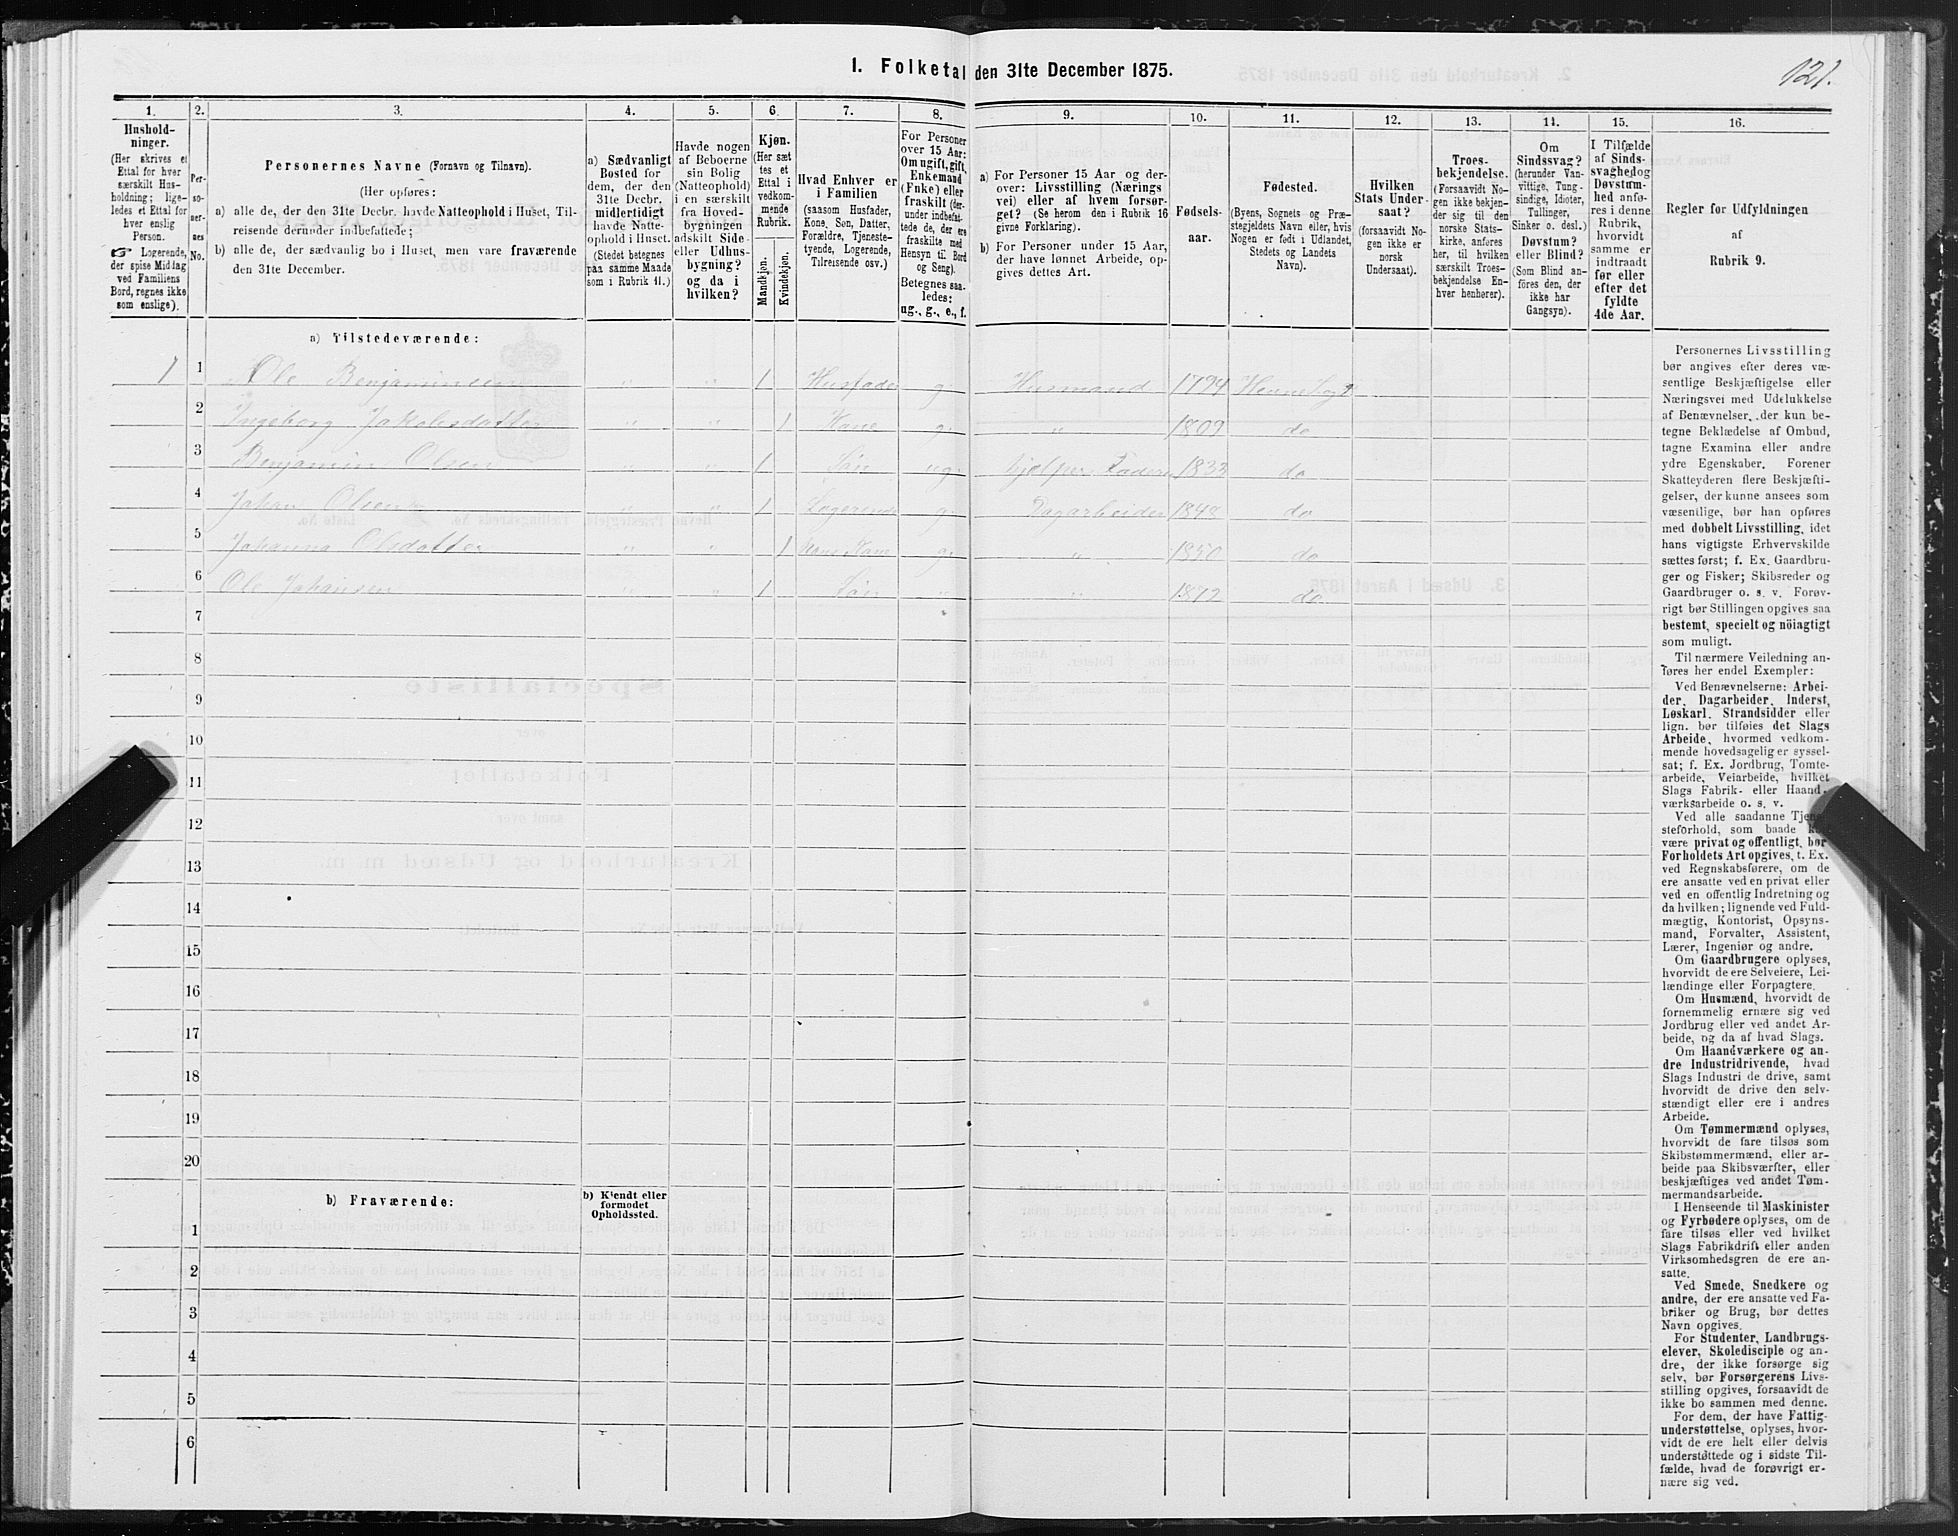 1. Folketal den 31te December 1875.
121.
1. 2. 3. 4. 5. 6. 7. 8. 9. 10. 11. 12. 13. 14. 15. 16.
Hushold-
ninger.
(Her skrives et
Ettal for hver
særskilt Hus-
holdning; lige-
ledes et Ettal for
hver enslig
Person.
☞ Logerende,
der spise Middag
ved Familiens
Bord, regnes ikke
som enslige).
Per-
so-
ner-
nes
No.
Personernes Navne (Fornavn og Tilnavn).
(Her opføres:
a) alle de, der den 31te Decbr. havde Natteophold i Huset, Til-
reisende derunder indbefattede;
b) alle de, der sædvanlig bo i Huset, men vare fraværende
den 31te December.
a) Sædvanligt
Bosted for
dem, der den
31te Decbr.
midlertidigt
havde Natte-
ophold i Huset.
(Stedet betegnes
paa samme Maade
som i Rubrik 11.)
Havde nogen
af Beboerne
sin Bolig
(Natteophold)
i en særskilt
fra Hoved-
bygningen
adskilt Side-
eller Udhus-
bygning?
og da i
hvilken?
Kjøn.
(Her sæt
tes et
Ettal i
vedkom-
mende
Rubrik.
Mandkjøn.
Kvindekjøn.
Hvad Enhver er
i Familien
(saasom Husfader,
Kone, Søn, Datter,
Forældre, Tjeneste-
tyende, Logerende,
Tilreisende osv.)
For Personer
over 15 Aar:
Om ugift, gift,
Enkemand
(Enke) eller
fraskilt (der-
under indbefat-
tede de, der ere
fraskilte med
Hensyn til Bord
og Seng).
Betegnes saa-
ledes:
ug., g., e., f.
a) For Personer 15 Aar og der-
over: Livsstilling (Nærings
vei) eller af hvem forsør-
get? (Se herom den i Rubrik 16
givne Forklaring).
b) For Personer under 15 Aar,
der have lønnet Arbeide, op-
gives dettes Art.
Fødsels-
aar.
Fødested.
(Byens, Sognets og Præ-
stegjeldets Navn eller, hvis
Nogen er født i Udlandet,
Stedets og Landets
Navn).
Hvilken
Stats Under-
saat?
(forsaavidt No-
gen ikke er
norsk
Undersaat).
Troes-
bekjendelse.
(Forsaavidt No-
gen ikke bekjen-
der sig til den
norske Stats-
kirke, anføres
her, til hvilken
særskilt Troes-
bekjendelse En-
hver henhører).
Om
Sindssvag?
(herunder Van-
vittige, Tung-
sindige, Idioter,
Tullinger,
Sinker o. desl.)
Døvstum?
eller Blind?
(Som Blind an-
føres den, der
ikke har
Gangsyn).
I Tilfælde
af Sinds-
svaghed og
Døvstum-
hed anfø-
res i denne
Rubrik,
hvorvidt
samme er
indtraadt
før eller
efter det
fyldte
4de Aar.
Regler for Udfyldningen
af
Rubrik 9.
a) Tilstedeværende:
1 1 Ole Benjaminsen " " 1 Husfader g. Husmand 1794 Hevne Sogt
2 Ingeborg Jakobsdatter " " 1 Kone g. " 1809 do
3 Benjamin Olsen " " 1 Søn ug. hjelper Faderen 1832 do
4 Johan Olsen " " 1 Logerende g. Dagarbeider 1848 do
5 Johanna Olsdatter " " 1 Hans Kone g. " 1850 do
6 Ole Johansen " " 1 Søn " " 1872 do
7
8
9
10
11
12
13
14
15
16
17
18
19
20
b) Fraværende:
b) Kjendt eller
formodet
Opholdssted.
1
2
3
4
5
6
Personernes Livsstilling
bør angives efter deres væ-
sentlige Beskjæftigelse eller
Næringsvei med Udelukkelse
af Benævnelser, der kun be-
tegne Beklædelse af Ombud,
tagne Examina eller andre
ydre Egenskaber. Forener
Skatteyderen flere Beskjæfti-
gelser, der kunne ansees som
væsentlige, bør han opføres
med dobbelt Livsstilling, idet
hans vigtigste Erhvervskilde
sættes først; f. Ex. Gaardbru-
ger og Fisker; Skibsreder og
Gaardbruger o. s. v. Forøv-
rigt bør Stillingen opgives saa
bestemt, specielt og nöiagtigt
som muligt.
Til nærmere Veiledning an-
føres her endel Exempler:
Ved Benævnelserne: Arbei-
der, Dagarbeider, Inderst,
Løskarl, Strandsidder eller
lign. bør tilføies det Slags
Arbeide, hvormed vedkom-
mende hovedsagelig er syssel-
sat; f. Ex. Jordbrug, Tomte-
arbeide, Veiarbeide, hvilket
Slags Fabrik- eller Haand-
værksarbeide o. s. v.
Ved alle saadanne Tjene-
steforhold, som baade
være privat og offentligt, bør
Forholdets Art opgives, t. Ex.
ved Regnskabsførere, om de
ere ansatte ved en privat eller
ved en offentlig Indretning og
da hvilken; lignende ved Fuld-
mægtig, Kontorist, Opsyns-
mand, Forvalter, Assistent,
Lærer, Ingeniør og andre.
Om Gaardbrugere oplyses,
hvorvidt de ere Selveiere, Lei-
lændinge eller Forpagtere.
Om Husmænd, hvorvidt de
fornemmelig ernære sig ved
Jordbrug eller ved andet Ar-
beide, og da af hvad Slags.
Om Haandværkere og an-
dre Industridrivende, hvad
Slags Industri de drive, samt
hvorvidt de drive den selv-
stændigt eller ere i andres
Arbeide.
Om Tømmermænd oplyses,
hvorvidt de fare tilsøs som
Skibstømmermænd, eller ar-
beide paa Skibsværfter, eller
beskjæftiges ved andet Tøm-
mermandsarbeide.
I Henseende til Maskinister
og Fyrbødere oplyses, om de
fare tilsøs eller ved hvilket
Slags Fabrikdrift eller anden
Virksomhedsgren de ere an-
satte.
Ved Smede, Snedkere og
andre, der ere ansatte ved Fa-
briker og Brug, bør dettes
Navn opgives.
For Studenter, Landbrugs-
elever, Skoledisciple og an-
dre, der ikke forsørge sig
selv, bør Forsørgerens Livs-
stilling opgives, forsaavidt de
ikke bo sammen med denne.
For dem, der have Fattig-
understøttelse, oplyses, hvor-
vidt de ere helt eller delvis
understøttede og i sidste Til-
fælde, hvad de forøvrigt er-
nære sig ved.